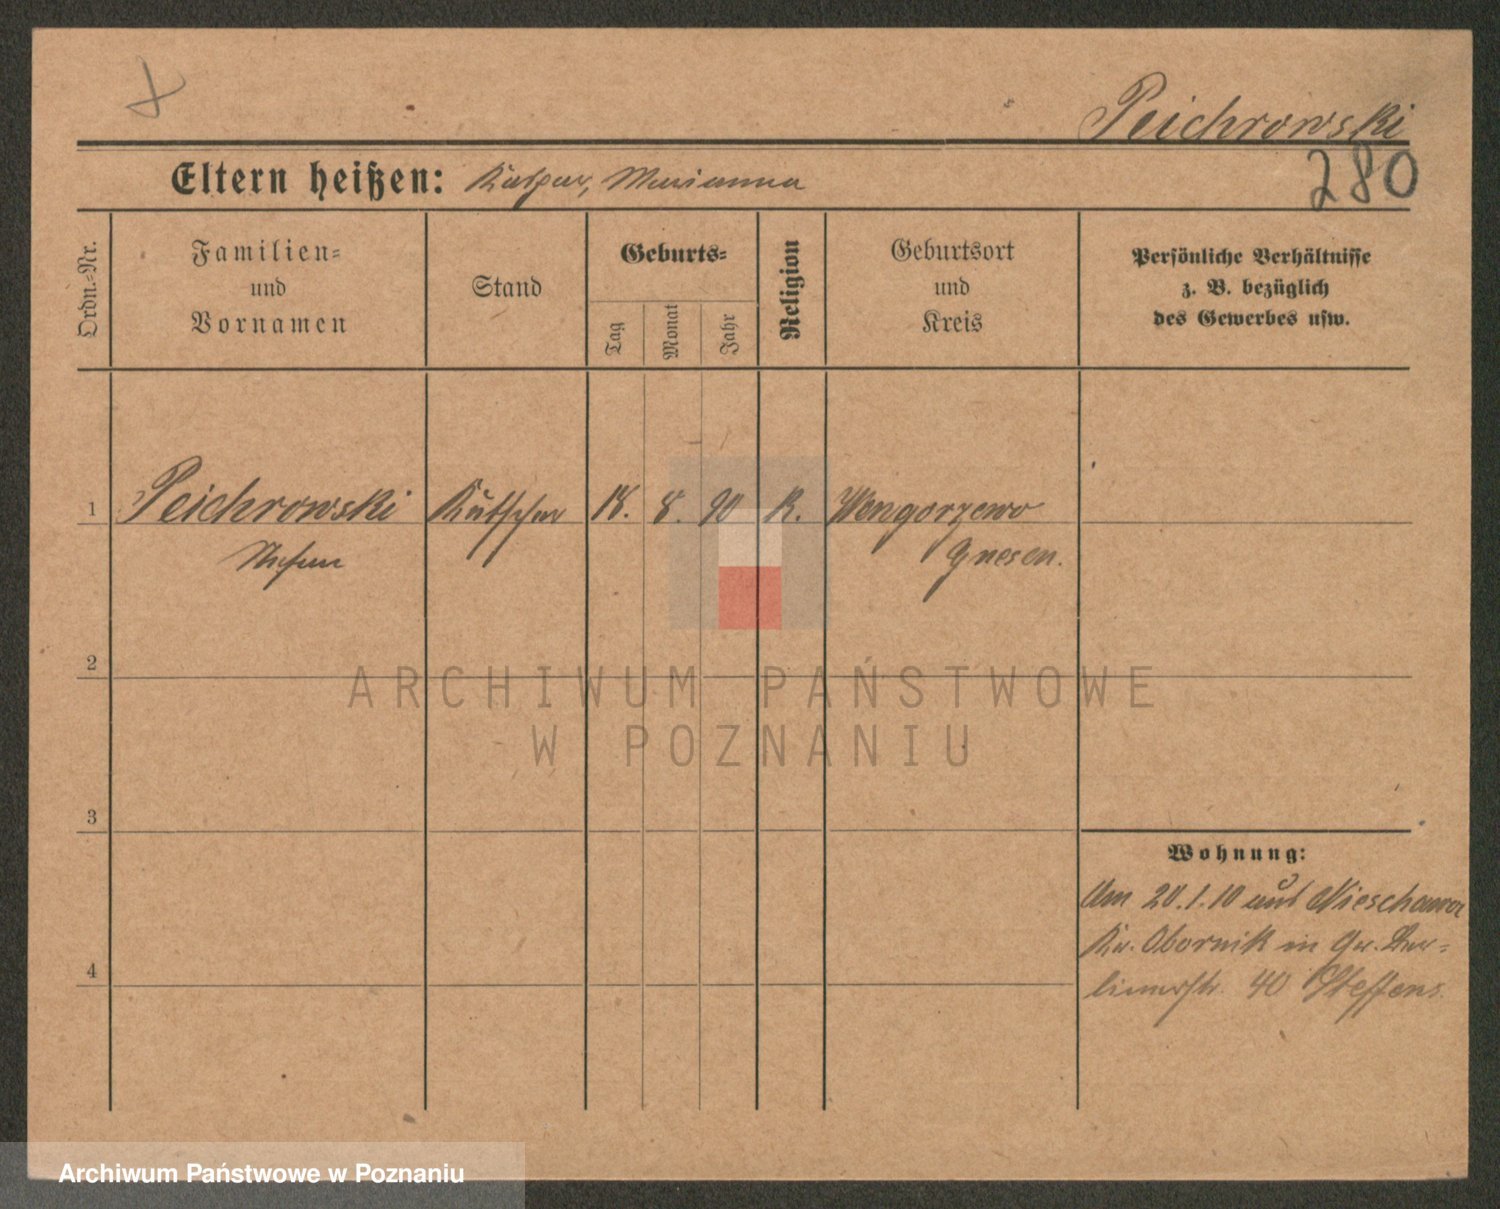 Peichrowski
280
Eltern heißen: Kaspar, Marianna
Ordn.=Nr.
Familien=
und
Vornamen
Stand
Geburts=
Tag
Monat
Jahr
Religion
Geburtsort
und
Kreis
Persönliche Verhältnisse
z. B. bezüglich
des Gewerbes usw.
1 Peichrowski Kutscher 18. 8. 90 K. Wengorzewo
Stefan Gnesen.
2
3
4
Wohnung:
Am 20.1.10 aus Nieschawa
Kr. Obornik in Gr. Ber=
linerstr. 40 Steffens
ARCHIWUM PAŃSTWOWE
W POZNANIU
Archiwum Państwowe w Poznaniu